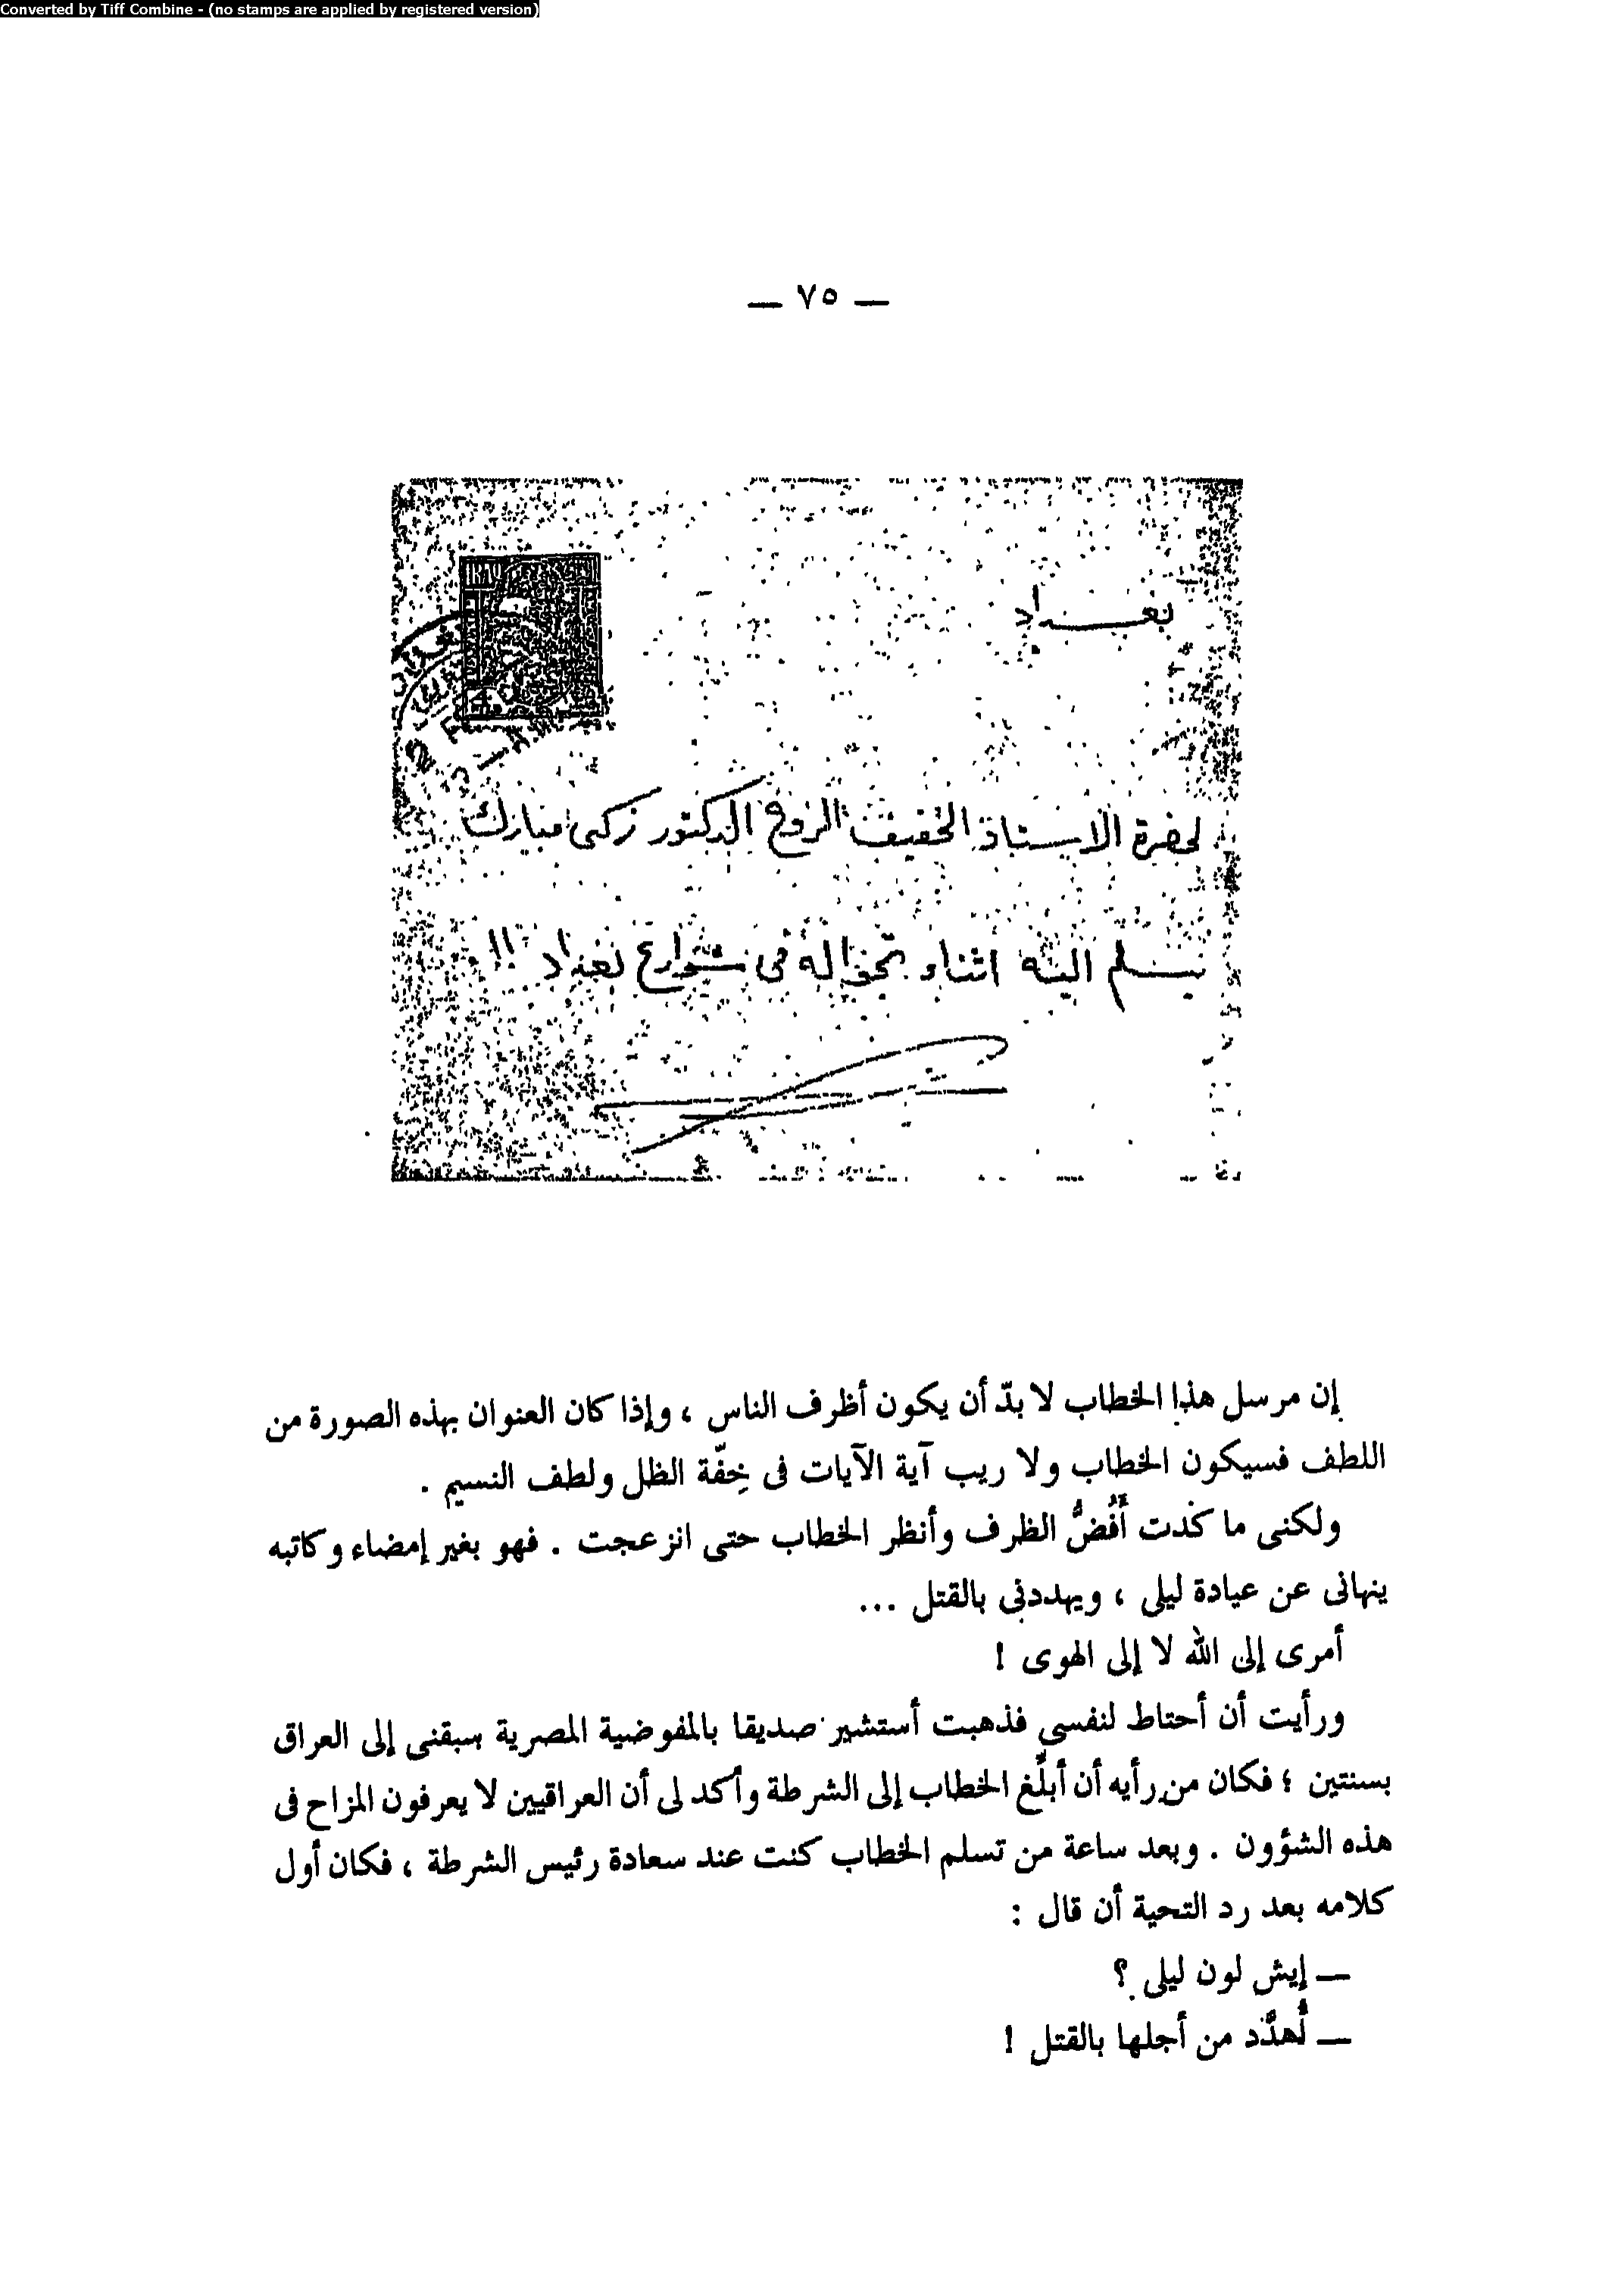 Converted by Tiff Combine - (no stamps are applied by registered version)
— ٧٥ —
بغداد
لحضرة الاستاذ الخفيف الروح الدكتور زكى مبارك
يسلم اليه اثناء تجواله فى شوارع بغداد !!
إن مرسل هذا الخطاب لا بدّ أن يكون أظرف الناس ، وإذا كان العنوان بهذه الصورة من
اللطف فسيكون الخطاب ولا ريب آية الآيات فى خِفّة الظل ولطف النسيم .
ولكنى ما كدت أَفُضُّ الظرف وأنظر الخطاب حتى انزعجت . فهو بغير إمضاء وكاتبه
ينهانى عن عيادة ليلى ، ويهددنى بالقتل ...
أمرى إلى الله لا إلى الهوى !
ورأيت أن أحتاط لنفسى فذهبت أستشير صديقا بالمفوضية المصرية سبقنى إلى العراق
بسنتين ؛ فكان من رأيه أن أبلِّغ الخطاب إلى الشرطة وأكد لى أن العراقيين لا يعرفون المزاح فى
هذه الشؤون . وبعد ساعة من تسلم الخطاب كنت عند سعادة رئيس الشرطة ، فكان أول
كلامه بعد رد التحية أن قال :
— إيش لون ليلى ؟
— أُهدَّد من أجلها بالقتل !